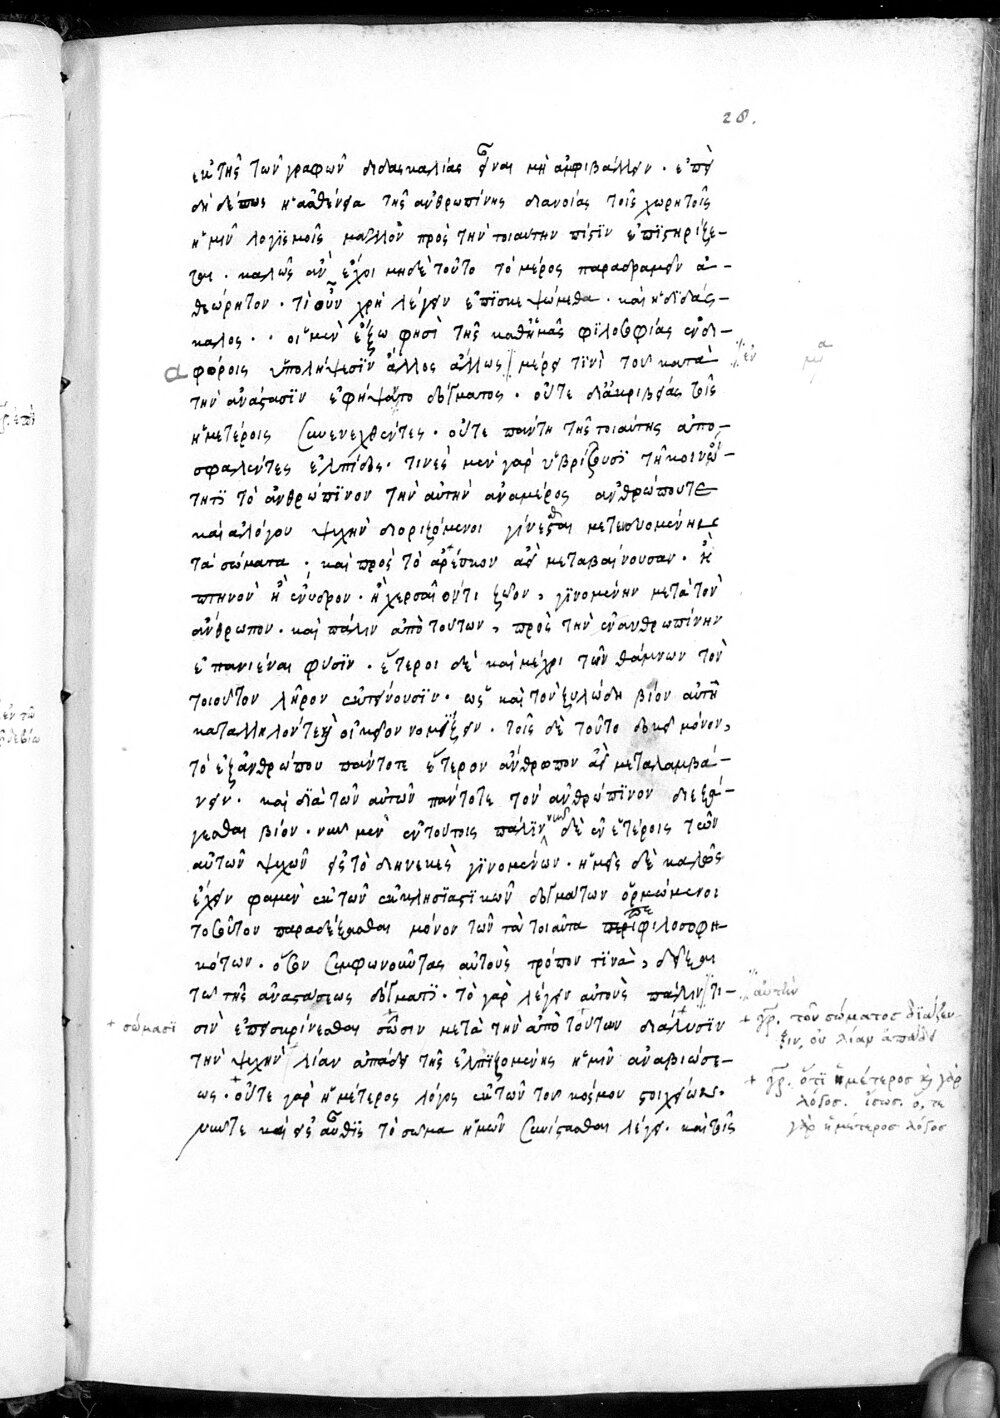 28.
ἐκ τῆς τῶν γραφῶν διδασκαλίας εἶναι μὴ ἀμφιβάλλειν. ἐπει
δὴ δέ πως ἡ ἀσθένεια τῆς ἀνθρωπίνης διανοίας τοῖς χωρητοῖς
ἡμῖν λογισμοῖς μᾶλλον πρὸς τὴν τοιαύτην πίστιν ἐπιστηρίζε-
ται. καλῶς ἂν ἔχοι μηδὲ τοῦτο τὸ μέρος παραδραμεῖν ἀ-
θεώρητον. τί οὖν χρὴ λέγειν ἐπισκεψώμεθα. καὶ ἡ διδάς-
καλος. οἱ μὲν ἔξω φησὶ τῆς καθ' ἡμᾶς φιλοσοφίας ἐν δι-
φόροις ὑπολήψεσιν ἄλλος ἄλλως μέρει τινὶ τοῦ κατὰ
α
ἐν
τὴν ἀνάστασιν ἐφήψαντο δόγματος. οὔτε δι' ἀκριβείας τοῖς
ἡμετέροις συνενεχθέντες. οὔτε πάντη τῆς τοιαύτης ἀπο-
σφαλέντες ἐλπίδος. τινὲς μὲν γὰρ ὑβρίζουσι τῇ κοινό-
τητι τὸ ἀνθρώπινον τὴν αὐτὴν ἀναμέρος ἀνθρώπου τε
καὶ ἀλόγου ψυχὴν διοριζόμενοι γίνεσθαι μετενδυομένην
τὰ σώματα. καὶ πρὸς τὸ ἀρέσκον ἀεὶ μεταβαίνουσαν. ἢ
πτηνὸν ἢ ἔνυδρον. ἢ χερσαῖόν τι ζῶον, γινομένην μετὰ τὸν
ἄνθρωπον. καὶ πάλιν ἀπὸ τούτων, πρὸς τὴν ἀνθρωπίνην
ἐπανιέναι φύσιν. ἕτεροι δὲ καὶ μέχρι τῶν θάμνων τὸν
τοιοῦτον λῆρον ἐκτείνουσιν. ὡς καὶ τὸν ξυλώδη βίον αὐτῇ
κατάλληλόν τε οἰκεῖον νομίζειν. τοῖς δὲ τοῦτο δοκεῖ μόνον,
τὸ ἐξ ἀνθρώπου πάντοτε ἕτερον ἄνθρωπον ἀεὶ μεταλαμβά-
νειν. καὶ διὰ τῶν αὐτῶν πάντοτε τὸν ἀνθρώπινον διεξά-
γεσθαι βίον. νῦν μὲν ἐν τούτοις πάλιν νῦν δὲ ἐν ἑτέροις τῶν
αὐτῶν ψυχῶν εἰς τὸ διηνεκὲς γινομένων. ἡμεῖς δὲ καλῶς
ἔχειν φαμὲν ἐκ τῶν ἐκκλησιαστικῶν δογμάτων ὁρμώμενοι
τοσοῦτον παραδέξασθαι μόνον τῶν τὰ τοιαῦτα πεφιλοσοφη-
κότων. ὅσον συμφωνοῦντας αὐτοὺς τρόπον τινὰ, δείξαι
τῷ τῆς ἀναστάσεως δόγματι. τὸ γὰρ λέγειν αὐτοὺς πάλιν τι-
αὐτὴν
σὶν ἐπεισκρίνεσθαι σώσιν μετὰ τὴν ἀπὸ τούτων διάλυσιν
+ σώμασι
+ γρ. τοῦ σώματος διάζευ
ξιν, οὐ λίαν ἀπᾴδει
τὴν ψυχὴν λίαν ἀπᾴδει τῆς ἐλπιζομένης ἡμῖν ἀναβιώσε-
ως. οὔτε γὰρ ἡμέτερος λόγος ἐκ τῶν τοῦ κόσμου στοιχείων.
+ γρ. ὅτι ἡμέτερος
λόγος. ἴσως. ὅ, τε
γὰρ ἡμέτερος λόγος
νῦν τε καὶ εἰς αὖθις τὸ σῶμα ἡμῶν συνίστασθαι λέγει. καὶ τοῖς